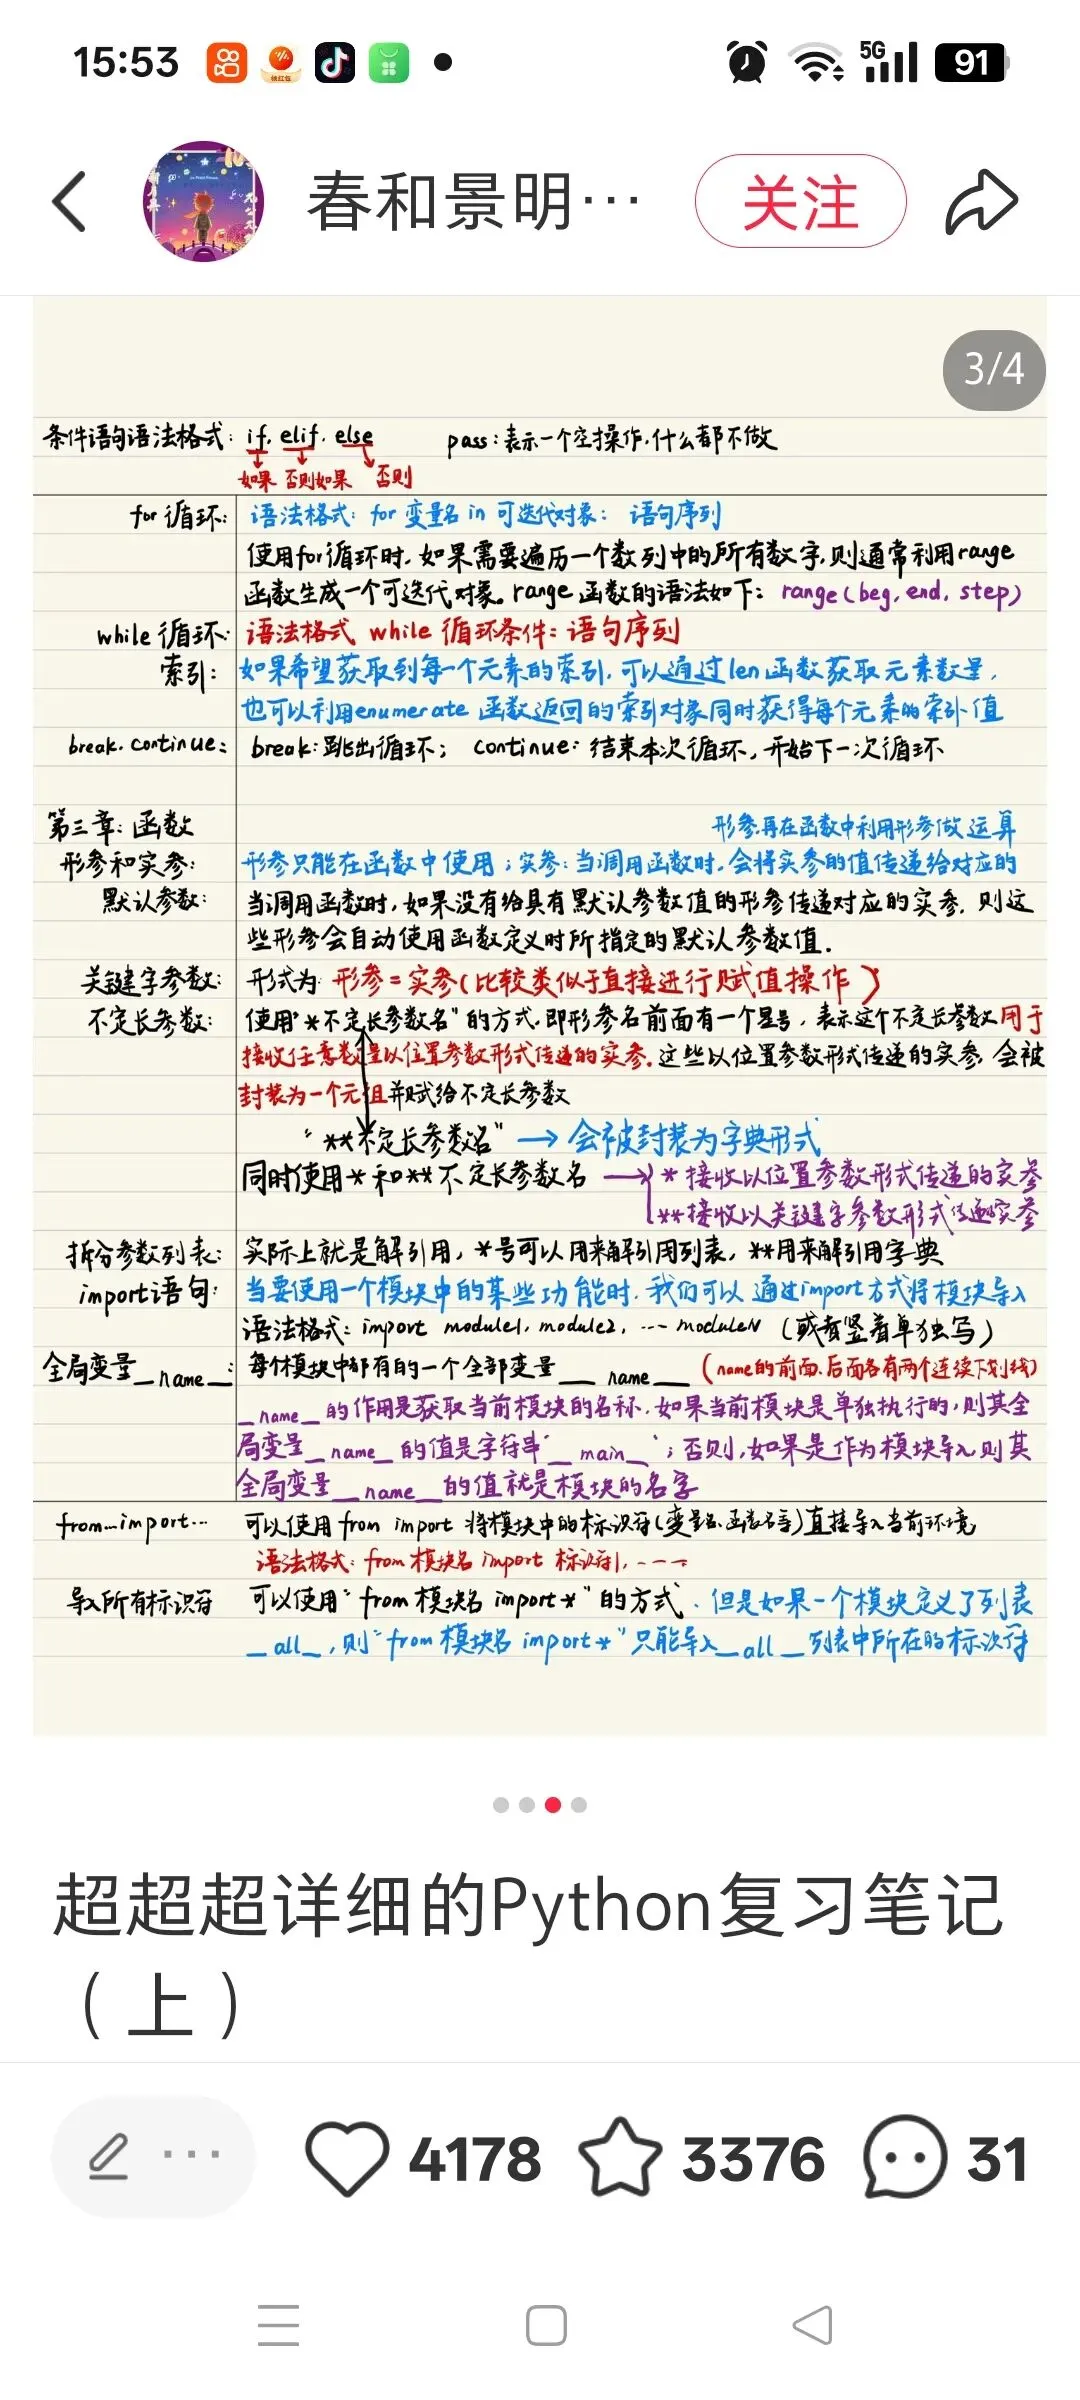 15:53
5G
91
春和景明…
关注
3/4
条件语句语法格式: if. elif. else pass:表示一个空操作,什么都不做
如果 否则如果 否则
for 循环: 语法格式: for 变量名 in 可迭代对象: 语句序列
使用for循环时,如果需要遍历一个数列中的所有数字,则通常利用range
函数生成一个可迭代对象。range函数的语法如下: range(beg, end, step)
while 循环: 语法格式 while 循环条件: 语句序列
索引: 如果希望获取到每一个元素的索引,可以通过len函数获取元素数量,
也可以利用enumerate 函数返回的索引对象同时获得每个元素的索引值
break.continue: break:跳出循环; continue: 结束本次循环,开始下一次循环
第三章: 函数 形参,再在函数中利用形参做运算
形参和实参: 形参只能在函数中使用;实参:当调用函数时,会将实参的值传递给对应的
默认参数: 当调用函数时,如果没有给具有默认参数值的形参传递对应的实参,则这
些形参会自动使用函数定义时所指定的默认参数值.
关键字参数: 形式为: 形参=实参(比较类似于直接进行赋值操作)
不定长参数: 使用"*不定长参数名"的方式,即形参名前面有一个星号,表示这个不定长参数用于
接收任意数量以位置参数形式传递的实参.这些以位置参数形式传递的实参,会被
封装为一个元组并赋给不定长参数
"**不定长参数名" → 会被封装为字典形式
同时使用*和**不定长参数名 → *接收以位置参数形式传递的实参
**接收以关键字参数形式传递的实参
拆分参数列表: 实际上就是解引用,*号可以用来解引用列表,**用来解引用字典
import语句: 当要使用一个模块中的某些功能时,我们可以通过import方式将模块导入
语法格式: import module1, module2, ... moduleN (或者竖着单独写)
全局变量__name__: 每个模块中都有的一个全部变量__name__(name的前面、后面各有两个连续下划线)
__name__的作用是获取当前模块的名称,如果当前模块是单独执行的,则其全
局变量__name__的值是字符串'__main__';否则,如果是作为模块导入则其
全局变量__name__的值就是模块的名字
from...import... 可以使用from import 将模块中的标识符(变量名、函数名等)直接导入当前环境
语法格式: from 模块名 import 标识符1, ----
导入所有标识符 可以使用"from 模块名 import *"的方式,但是如果一个模块定义了列表
__all__,则"from 模块名 import *"只能导入__all__列表中所在的标识符
超超超详细的Python复习笔记
(上)
4178
3376
31